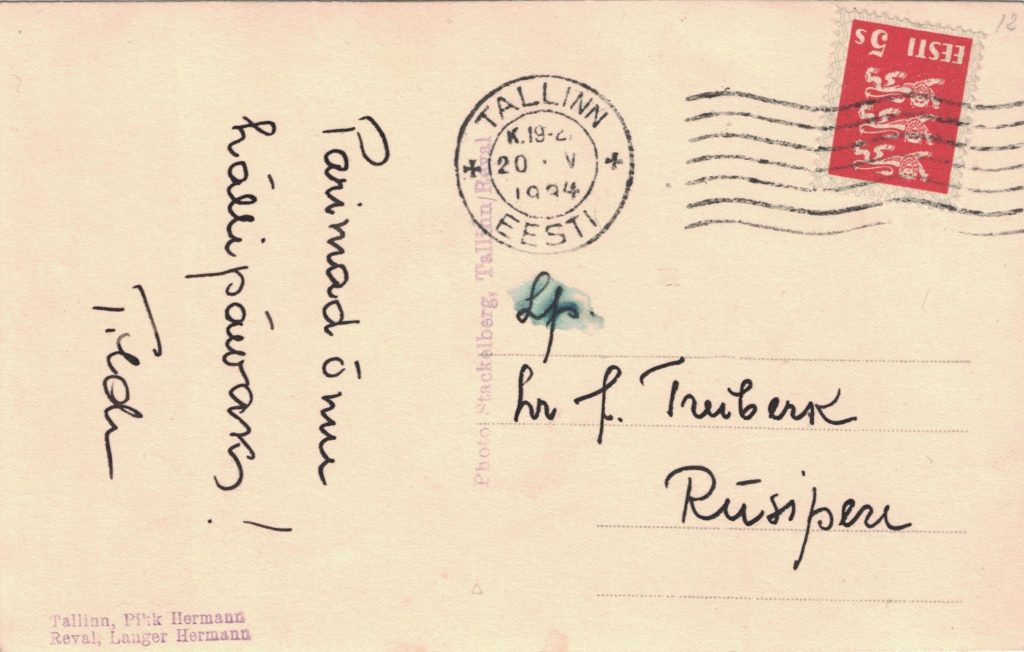 Parimad õnne
hällipäevaks!
Tildi
TALLINN
K.19-2
20 · V
1934
EESTI
EESTI 5s
12
Photo: Stackelberg, Tallinn/Reval
Lp.
hr J. Treiberk
Riisipere
Tallinn, Pikk Hermann
Reval, Langer Hermann